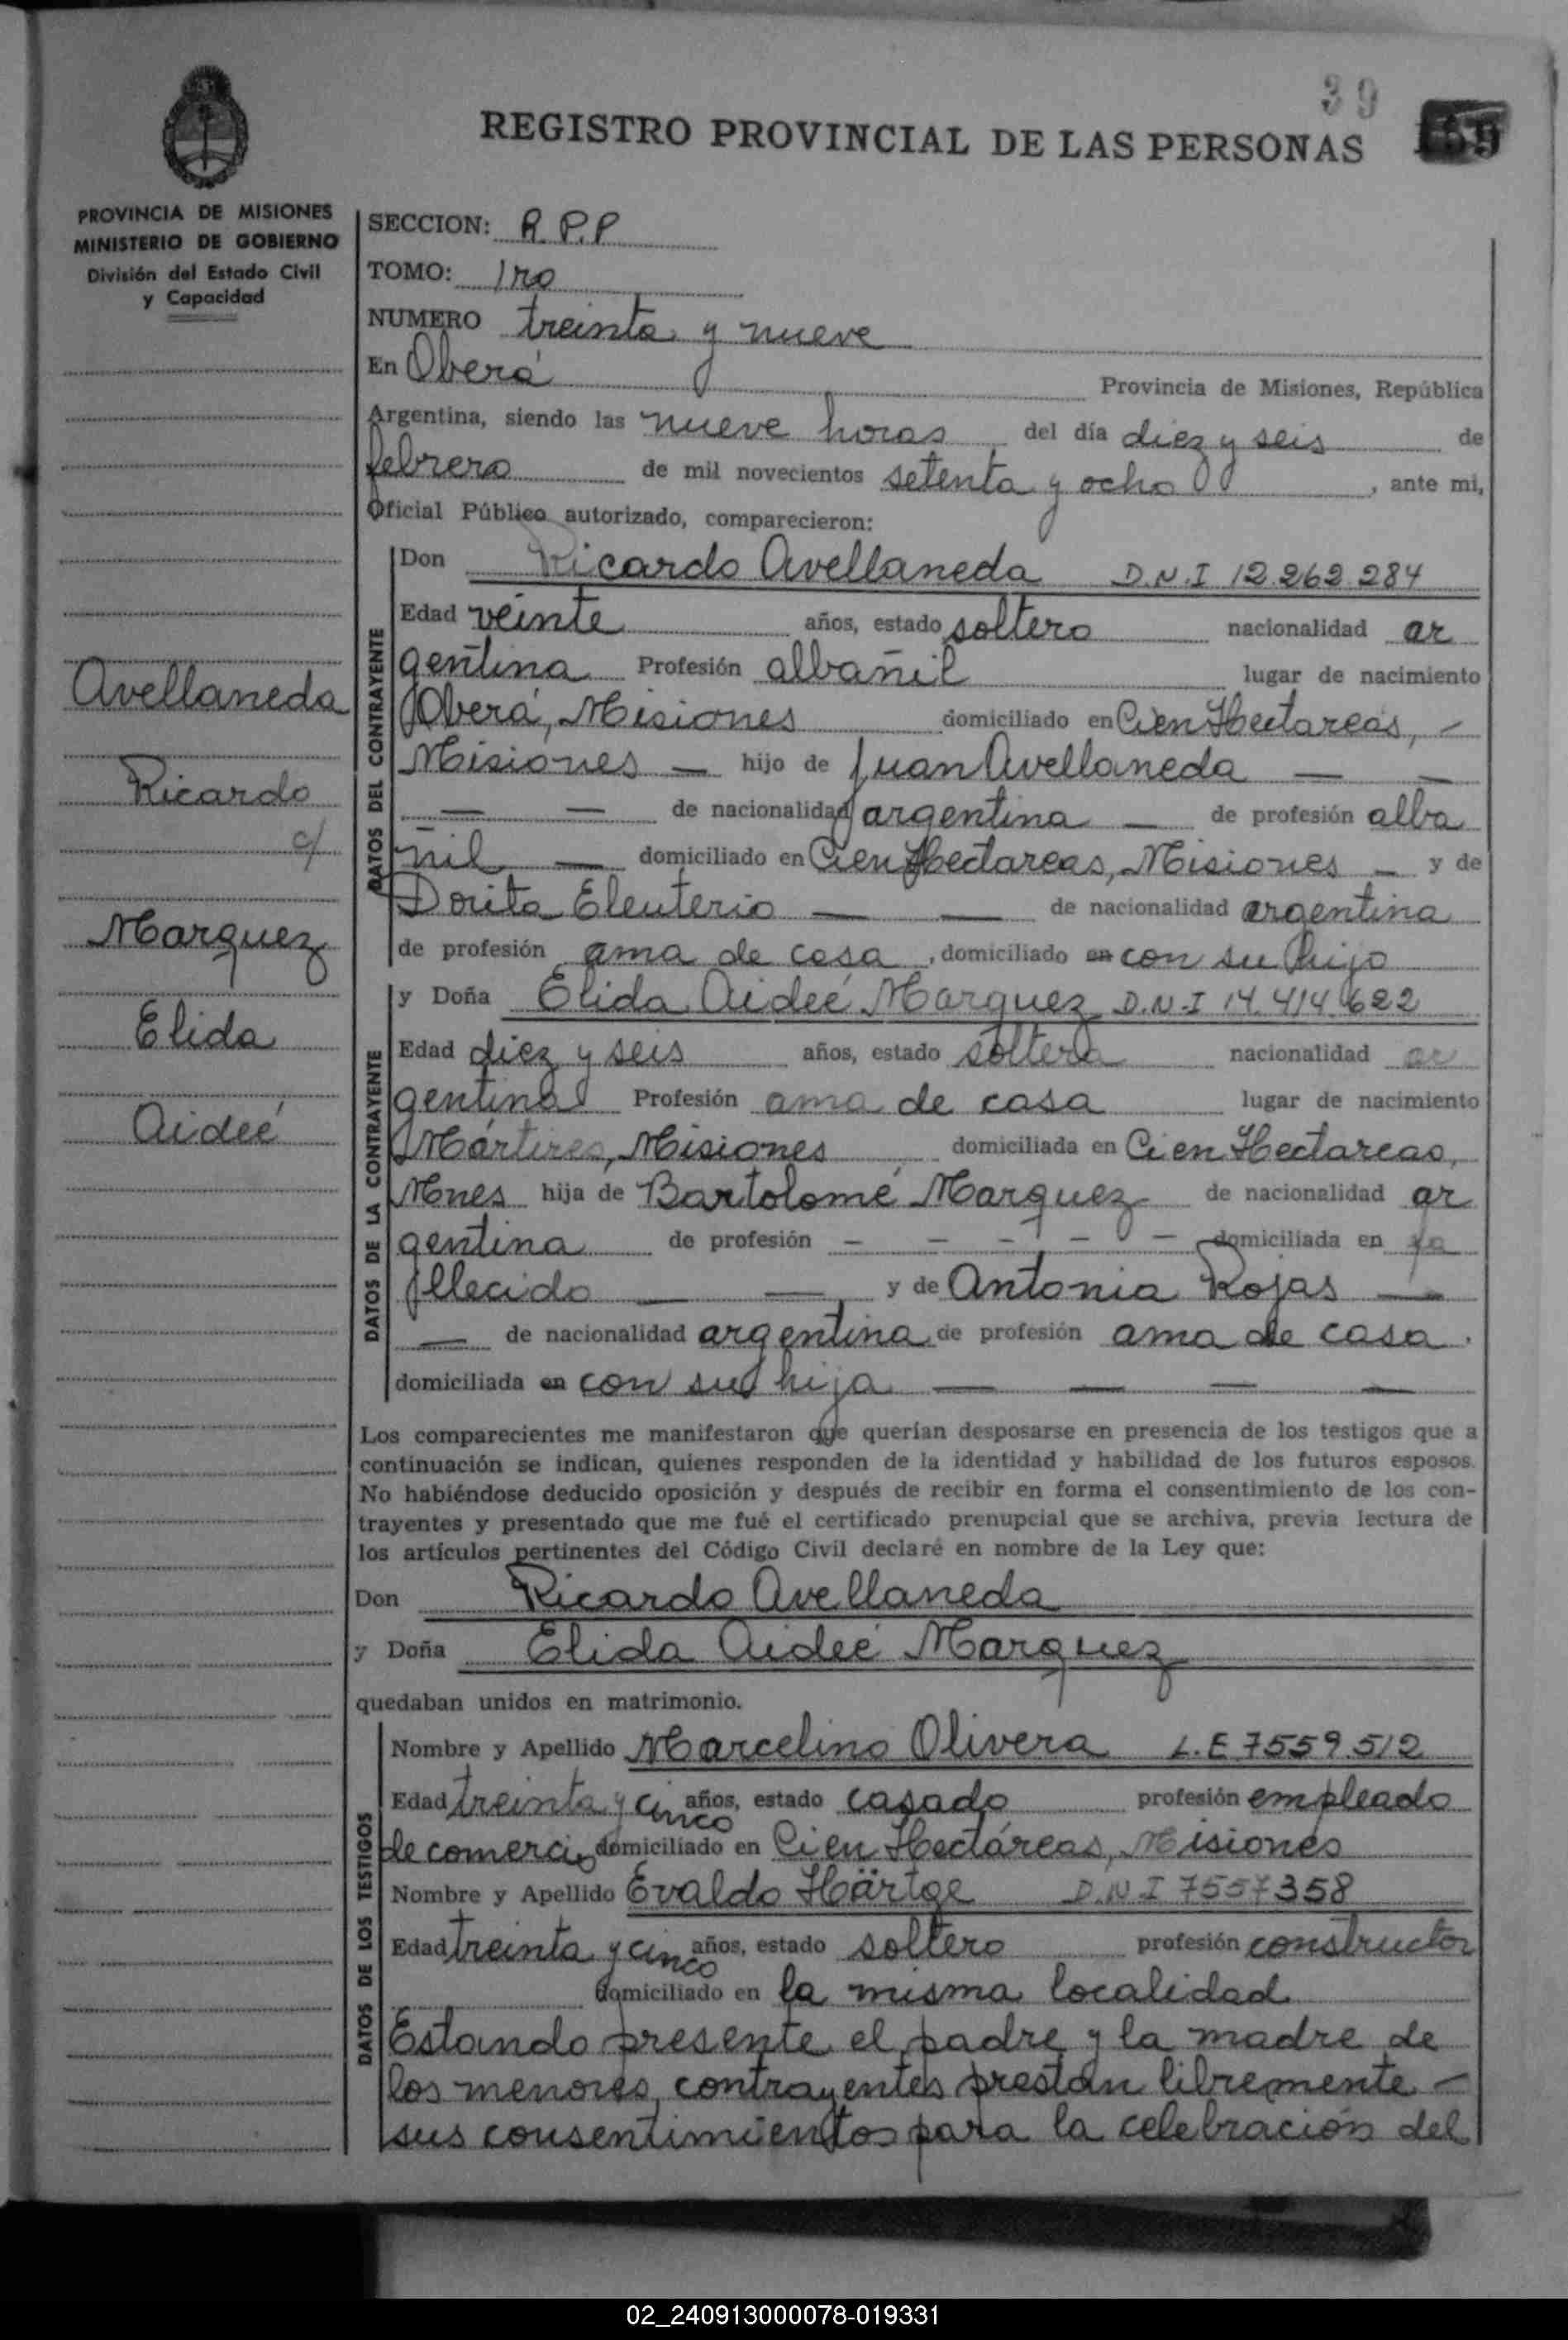 39
REGISTRO PROVINCIAL DE LAS PERSONAS
PROVINCIA DE MISIONES
MINISTERIO DE GOBIERNO
División del Estado Civil
y Capacidad
Avellaneda
Ricardo
c/
Marquez
Elida
Aideé
SECCION: R.P.P
TOMO: 1ro
NUMERO treinta y nueve
En Oberá Provincia de Misiones, República
Argentina, siendo las nueve horas del día diez y seis de
febrero de mil novecientos setenta y ocho, ante mi,
Oficial Público autorizado, comparecieron:
DATOS DEL CONTRAYENTE
Don Ricardo Avellaneda D.N.I 12.262.284
Edad veinte años, estado soltero nacionalidad ar
gentina Profesión albañil lugar de nacimiento
Oberá, Misiones domiciliado en Cien Hectareas, -
Misiones — hijo de Juan Avellaneda — —
— — de nacionalidad argentina — de profesión alba
ñil — domiciliado en Cien Hectareas, Misiones — y de
Dorita Eleuterio — — de nacionalidad argentina
de profesión ama de casa, domiciliado en con su hijo
DATOS DE LA CONTRAYENTE
y Doña Elida Aideé Marquez D.N.I 14.414.622
Edad diez y seis años, estado soltera nacionalidad ar
gentina Profesión ama de casa lugar de nacimiento
Mártires, Misiones domiciliada en Cien Hectareas,
Mnes hija de Bartolomé Marquez de nacionalidad ar
gentina de profesión - - - - - domiciliada en fa
llecido — — y de Antonia Rojas —
— de nacionalidad argentina de profesión ama de casa.
domiciliada en con su hija — — — —
Los comparecientes me manifestaron que querían desposarse en presencia de los testigos que a
continuación se indican, quienes responden de la identidad y habilidad de los futuros esposos.
No habiéndose deducido oposición y después de recibir en forma el consentimiento de los con-
trayentes y presentado que me fué el certificado prenupcial que se archiva, previa lectura de
los artículos pertinentes del Código Civil declaré en nombre de la Ley que:
Don Ricardo Avellaneda
y Doña Elida Aideé Marquez
quedaban unidos en matrimonio.
DATOS DE LOS TESTIGOS
Nombre y Apellido Marcelino Olivera L.E 7559.512
Edad treinta y cinco años, estado casado profesión empleado
de comercio domiciliado en Cien Hectáreas, Misiones
Nombre y Apellido Evaldo Härtge D.N.I 7557358
Edad treinta y cinco años, estado soltero profesión constructor
domiciliado en la misma localidad
Estando presente el padre y la madre de
los menores contrayentes prestan libremente -
sus consentimientos para la celebración del
02_240913000078-019331